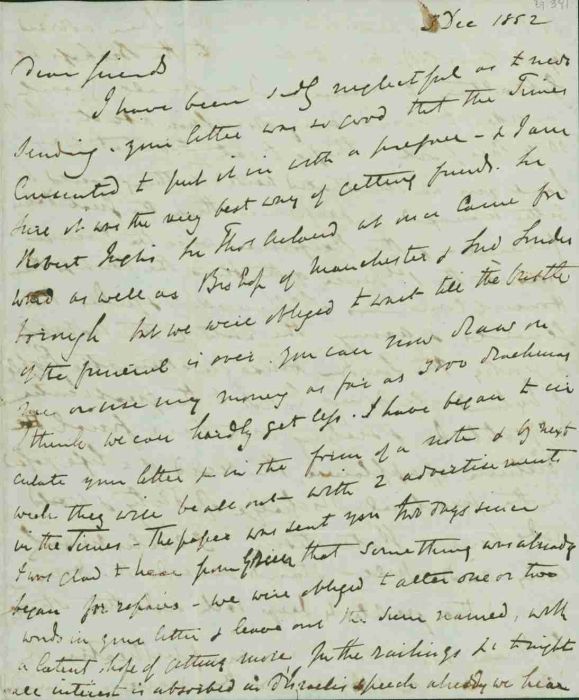 3 Dec 1852
Dear friends
I have been sadly neglectful as to news
sending. your letter was so good that the Times
Consented to put it in with a preface - & I am
sure it was the very best way of getting funds. Sir
Robert Inglis Sir Thos Acland at once came for
ward as well as Bishop of Manchester & Lord Londes
borough but we were obliged to wait till the bustle
of the funeral is over. you can now draw on
me or use my money as far as 3000 drachmas
I think we can hardly get less. I have began to cir
culate your letter & in the form of a note & by next
week they will be all out with 2 advertisements
in the Times - The paper was sent you two days since
I was glad to hear from that something was already
began for repairs - we were obliged to alter one or two
words in your letter & leave out the sum named, with
a latent hope of getting more for the railings &c tonight
all interest is absorbed in D'Israelis speech already we hear